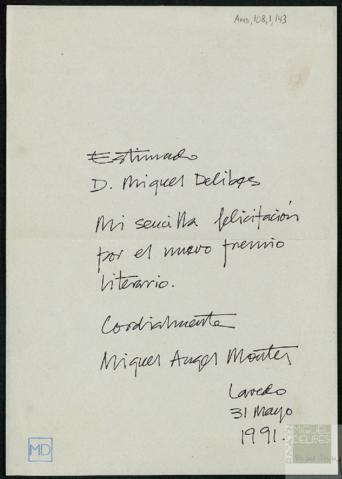 AMD,108,1,143
Estimado
D. Miguel Delibes
Mi sencilla felicitación
por el nuevo premio
literario.
Cordialmente
Miguel Angel Montes
Laredo
31 Mayo
1991.
MD
FUNDACIÓN
MIGUEL
DELIBES